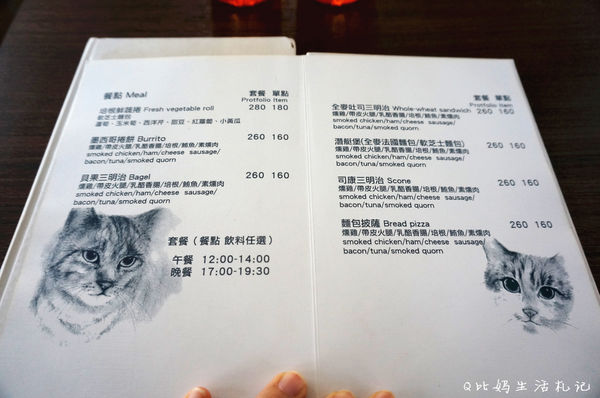 餐點 Meal
套餐 單點
Protfolio Item
培根鮮蔬捲 Fresh vegetable roll 280 180
軟芝士麵包
蘆筍、玉米筍、西洋芹、甜豆、紅蘿蔔、小黃瓜
墨西哥捲餅 Burrito 260 160
燻雞/帶皮火腿/乳酪香腸/培根/鮪魚/素燻肉
smoked chicken/ham/cheese sausage/
bacon/tuna/smocked quorn
貝果三明治 Bagel 260 160
燻雞/帶皮火腿/乳酪香腸/培根/鮪魚/素燻肉
smocked chicken/ham/cheese sausage/
bacon/tuna/smocked quorn
套餐 ( 餐點 飲料任選 )
午餐 12:00-14:00
晚餐 17:00-19:30
套餐 單點
Protfolio Item
全麥吐司三明治 Whole-wheat sandwich 260 160
燻雞/帶皮火腿/乳酪香腸/培根/鮪魚/素燻肉
smocked chicken/ham/cheese sausage/
bacon/tuna/smocked quorn
潛艇堡(全麥法國麵包/軟芝士麵包) 260 160
燻雞/帶皮火腿/乳酪香腸/培根/鮪魚/素燻肉
smocked chicken/ham/cheese sausage/
bacon/tuna/smocked quorn
司康三明治 Scone 260 160
燻雞/帶皮火腿/乳酪香腸/培根/鮪魚/素燻肉
smocked chicken/ham/cheese sausage/
bacon/tuna/smocked quorn
麵包披薩 Bread pizza 260 160
燻雞/帶皮火腿/乳酪香腸/培根/鮪魚/素燻肉
smocked chicken/ham/cheese sausage/
bacon/tuna/smocked quorn
Q比妈生活札记